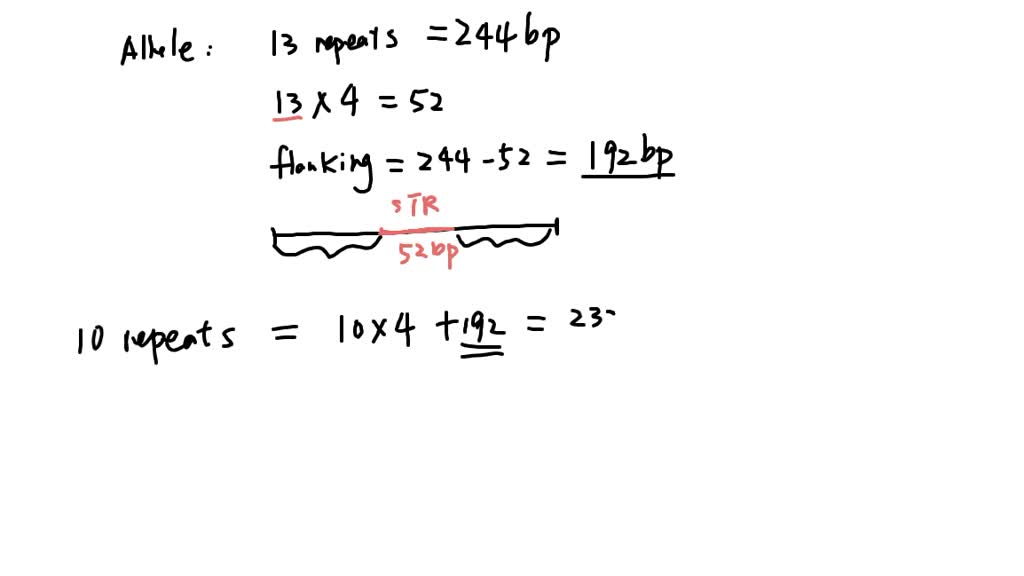 Allele: 13 repeats = 244 bp
13 × 4 = 52
flanking = 244 - 52 = 192 bp
STR
52 bp
10 repeats = 10 × 4 + 192 = 23